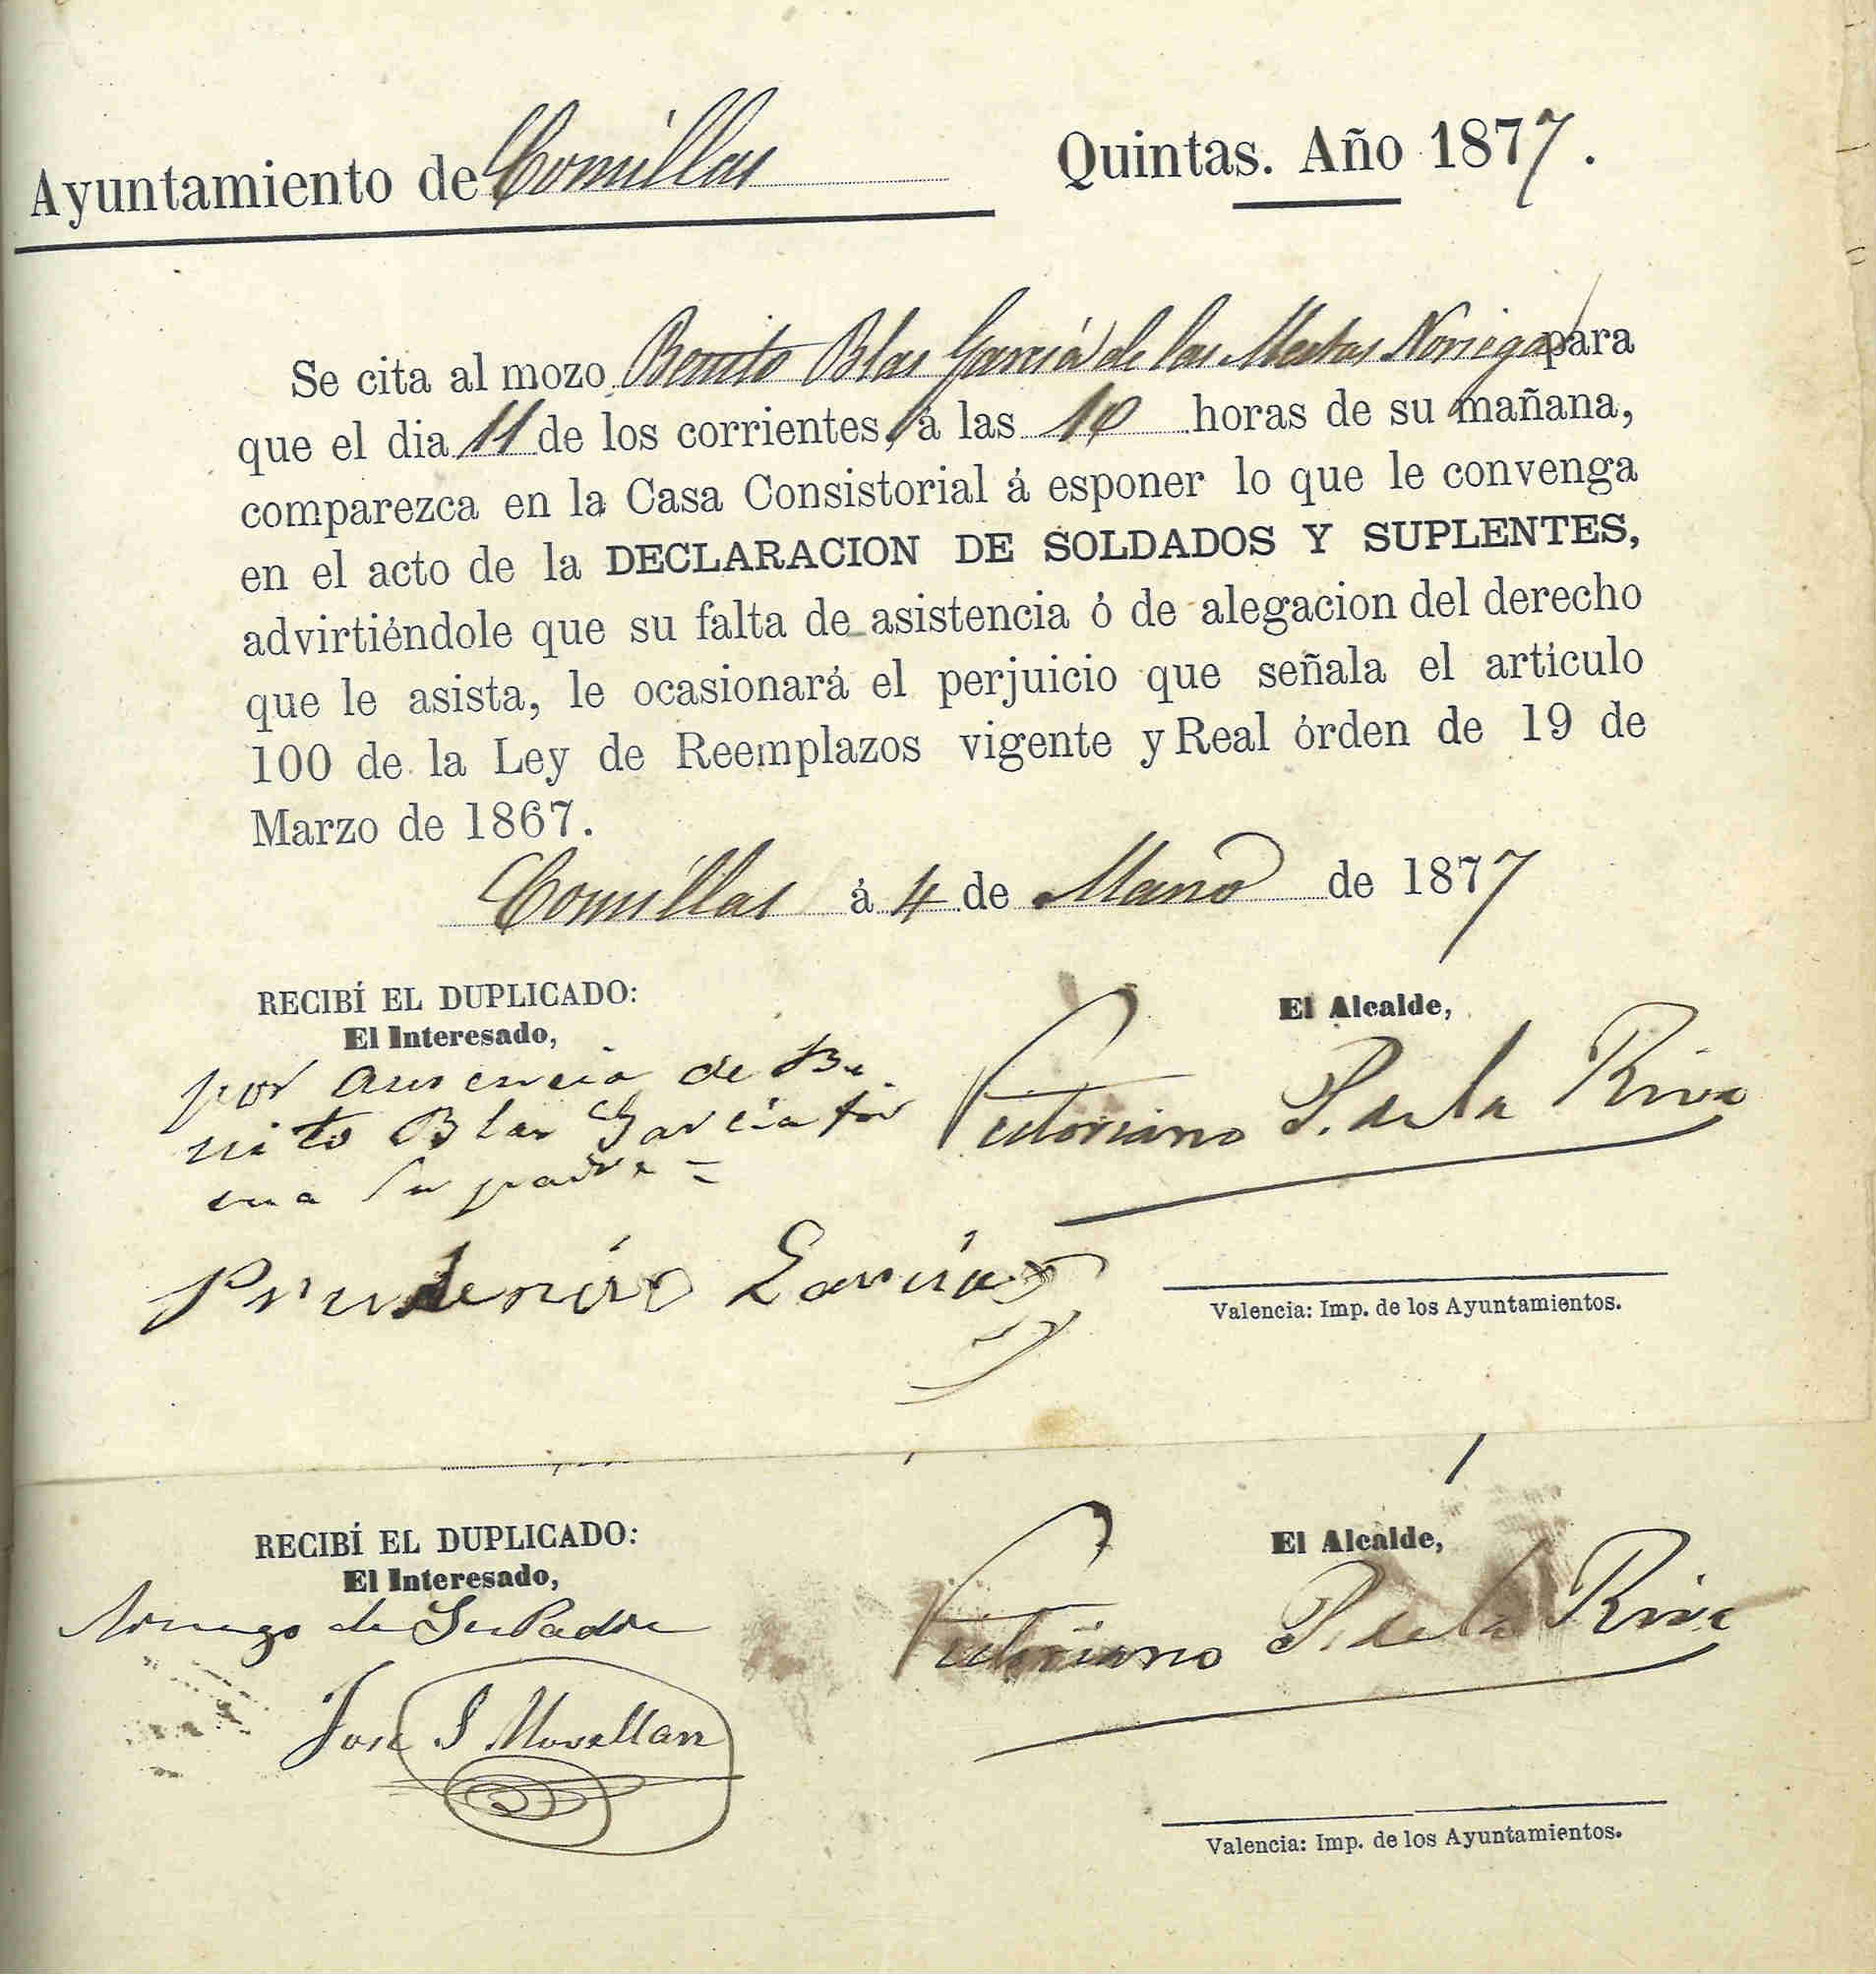 Ayuntamiento de Comillas
Quintas. Año 1877.
Se cita al mozo Benito Blas García de las Mestas Noriega para
que el dia 11 de los corrientes, á las 10 horas de su mañana,
comparezca en la Casa Consistorial á esponer lo que le convenga
en el acto de la DECLARACION DE SOLDADOS Y SUPLENTES,
advirtiéndole que su falta de asistencia ó de alegacion del derecho
que le asista, le ocasionará el perjuicio que señala el artículo
100 de la Ley de Reemplazos vigente y Real órden de 19 de
Marzo de 1867.
Comillas á 4 de Marzo de 1877
RECIBÍ EL DUPLICADO:
El Interesado,
por ausencia de Be
nito Blas Garcia fir
ma su padre =
Prudencio García
El Alcalde,
Victoriano P. de la Riva
Valencia: Imp. de los Ayuntamientos.
RECIBÍ EL DUPLICADO:
El Interesado,
de Su Padre
Jose S Movellan
El Alcalde,
Victoriano P. de la Riva
Valencia: Imp. de los Ayuntamientos.